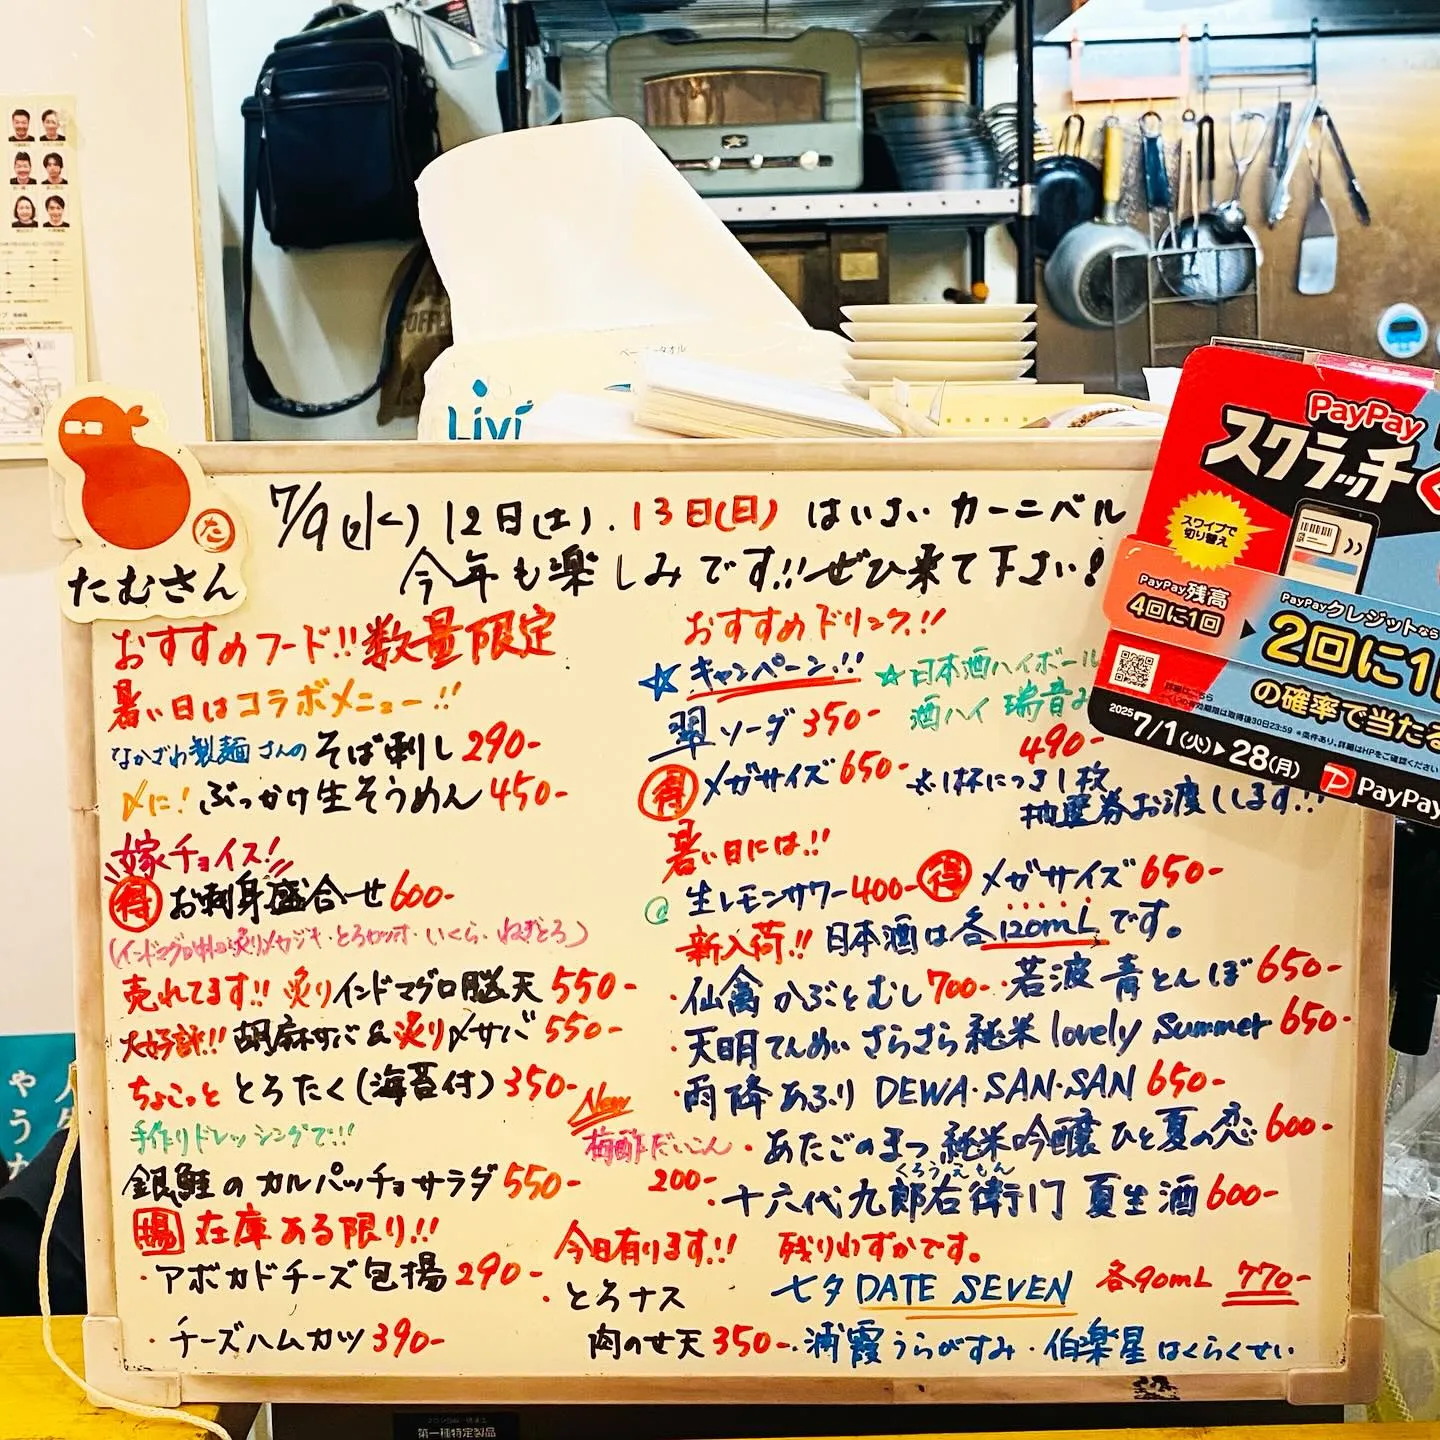 Livi
ペーパータオル
た
たむさん
7/9(水) 12日(土).13日(日) はいさい カーニバル
今年も楽しみです!!ぜひ来て下さい!
おすすめフード!!数量限定
暑い日はコラボメニュー!!
なかざわ製麺さんの そば刺し 290-
〆に! ぶっかけ生そうめん 450-
嫁チョイス!
得 お刺身盛合せ 600-
メカジキ・とろカツオ・いくら・ねぎとろ)
売れてます!! 炙りインドマグロ脳天 550-
大好評!! 胡麻サバ&炙り〆サバ 550-
ちょこっと とろたく(海苔付) 350-
手作りドレッシングで!!
銀鮭のカルパッチョサラダ 550-
揚 在庫ある限り!!
・アボカドチーズ包揚 290-
・チーズハムカツ 390-
New
梅酢だいこん
200-
今日有ります!!
・とろナス
肉のせ天 350-
おすすめドリンク!!
☆キャンペーン!!
翠ソーダ 350-
得 メガサイズ 650-
☆日本酒ハイボール
酒ハイ 瑞音
490-
※1杯につき1枚
抽選券お渡しします!!
暑い日には!!
生レモンサワー 400- 得 メガサイズ 650-
新入荷!! 日本酒は各120mLです。
・仙禽 かぶとむし 700- ・若波 青とんぼ 650-
・天明 てんめい さらさら純米 lovely Summer 650-
・雨降 あふり DEWA・SAN・SAN 650-
・あたごのまつ 純米吟醸 ひと夏の恋 600-
くろうえもん
・十六代九郎右衛門 夏生酒 600-
残りわずかです。
七夕 DATE SEVEN 各90mL 770-
・浦霞 うらがすみ ・伯楽星 はくらくせい
PayPay
スクラッチ
スワイプで
切り替え
PayPay残高
4回に1回
PayPayクレジットなら
2回に1
の確率で当たる
詳細はこちら
2025 7/1(火)▶28(月)
PayPay
第一種特定製品